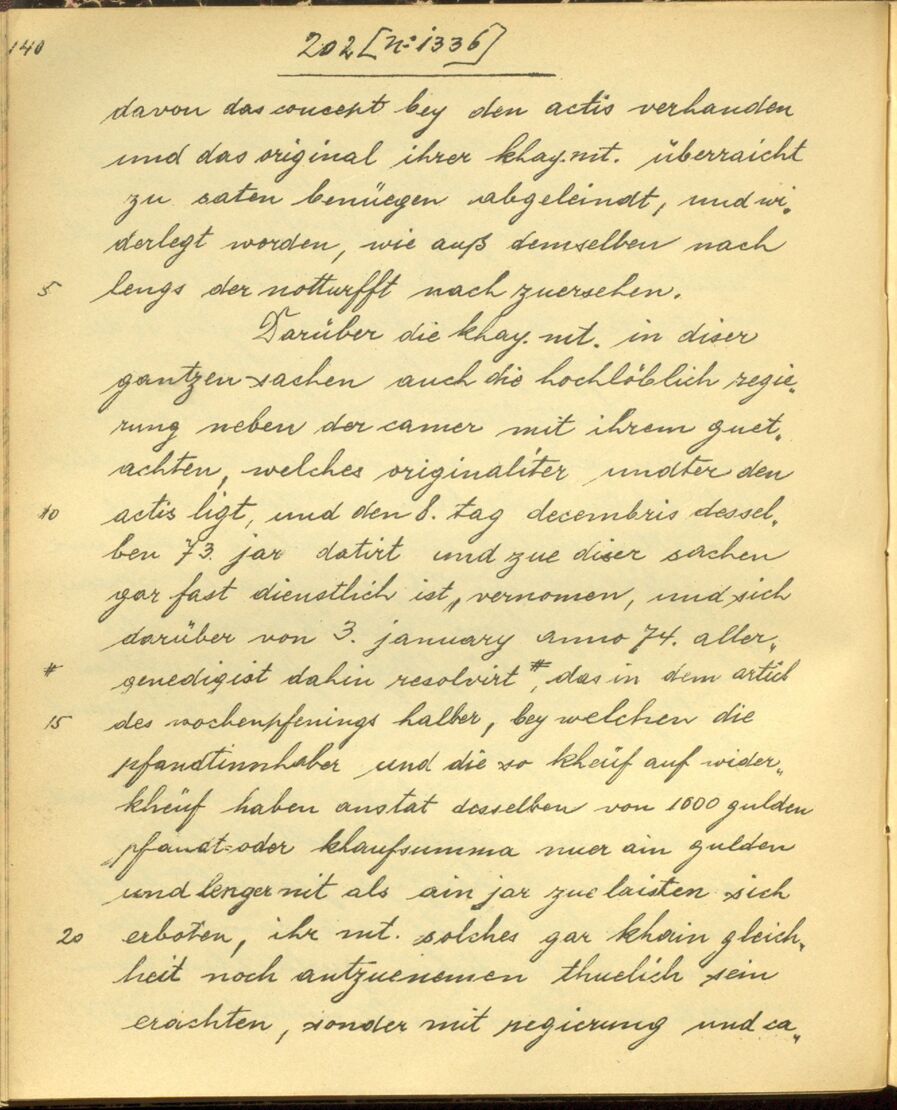 140
202 [No 1336]
davon das concept bey den actis verhanden
und das original ihrer khay. mt. überraicht
zu saten benüegen abgeleindt, und wi„
derlegt worden, wie auß demselben nach
5 lengs der notturfft nach zuersehen.
Darüber die khay. mt. in diser
gantzen sachen auch die hochlöblich regie„
rung neben der camer mit ihrem guet„
achten, welches originaliter undter den
10 actis ligt, und den 8. tag decembris dessel„
ben 73. jar datirt und zue diser sachen
gar fast dienstlich ist, vernomen, und sich
darüber von 3. january anno 74. aller„
# genedigist dahin resolvirt #, das in dem articl
15 des wochenpfenings halber, bey welchen die
pfandtinnhaber und die so kheüf auf wider„
kheüf haben anstat desselben von 1000 gulden
pfandt-oder khaufsumma nuer ain gulden
und lenger nit als ain jar zue laisten sich
20 erboten, ihr mt. solches gar khain gleich„
heit noch antzuenemen thuelich sein
erachten, sonder mit regierung und ca„